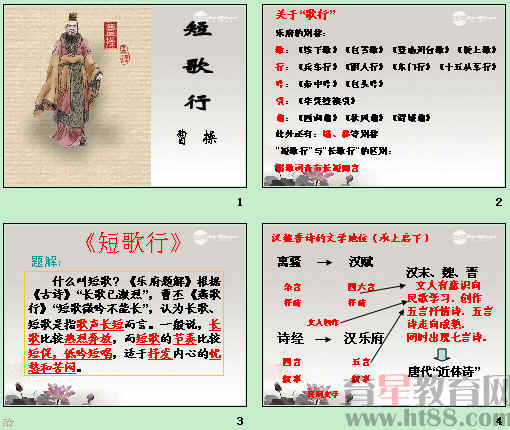 短
歌
行
曹 操
1
关于“歌行”
乐府的别称
歌：《垓下歌》《白云歌》《登幽州台歌》
行：《兵车行》《丽人行》《东门行》《十五从军行》
吟：《秦中吟》《白头吟》
此外还有：
“短歌行”与“长歌行”的区别：
2
《短歌行》
题解：
什么叫短歌？《乐府题解》根据
《古诗》“长歌已激烈”，曹丕《燕歌
行》“短歌微吟不能长”，认为长歌、
短歌是指歌声长短而言。一般说，长
歌比较热烈奔放，而短歌的节奏比较
短促，低吟短唱，适于抒发内心的忧
愁和苦闷。
3
汉魏晋诗的文学地位（承上启下）
离骚
汉赋
杂言
抒情
四六言
抒情
文人创作
诗经
汉乐府
四言
叙事
五言
叙事
汉末、魏、晋
文人有意识向
民歌学习，创作
五言抒情诗。五言
诗走向成熟。
同时出现七言诗。
唐代“近体诗”
4
育星教育网
www.ht88.com